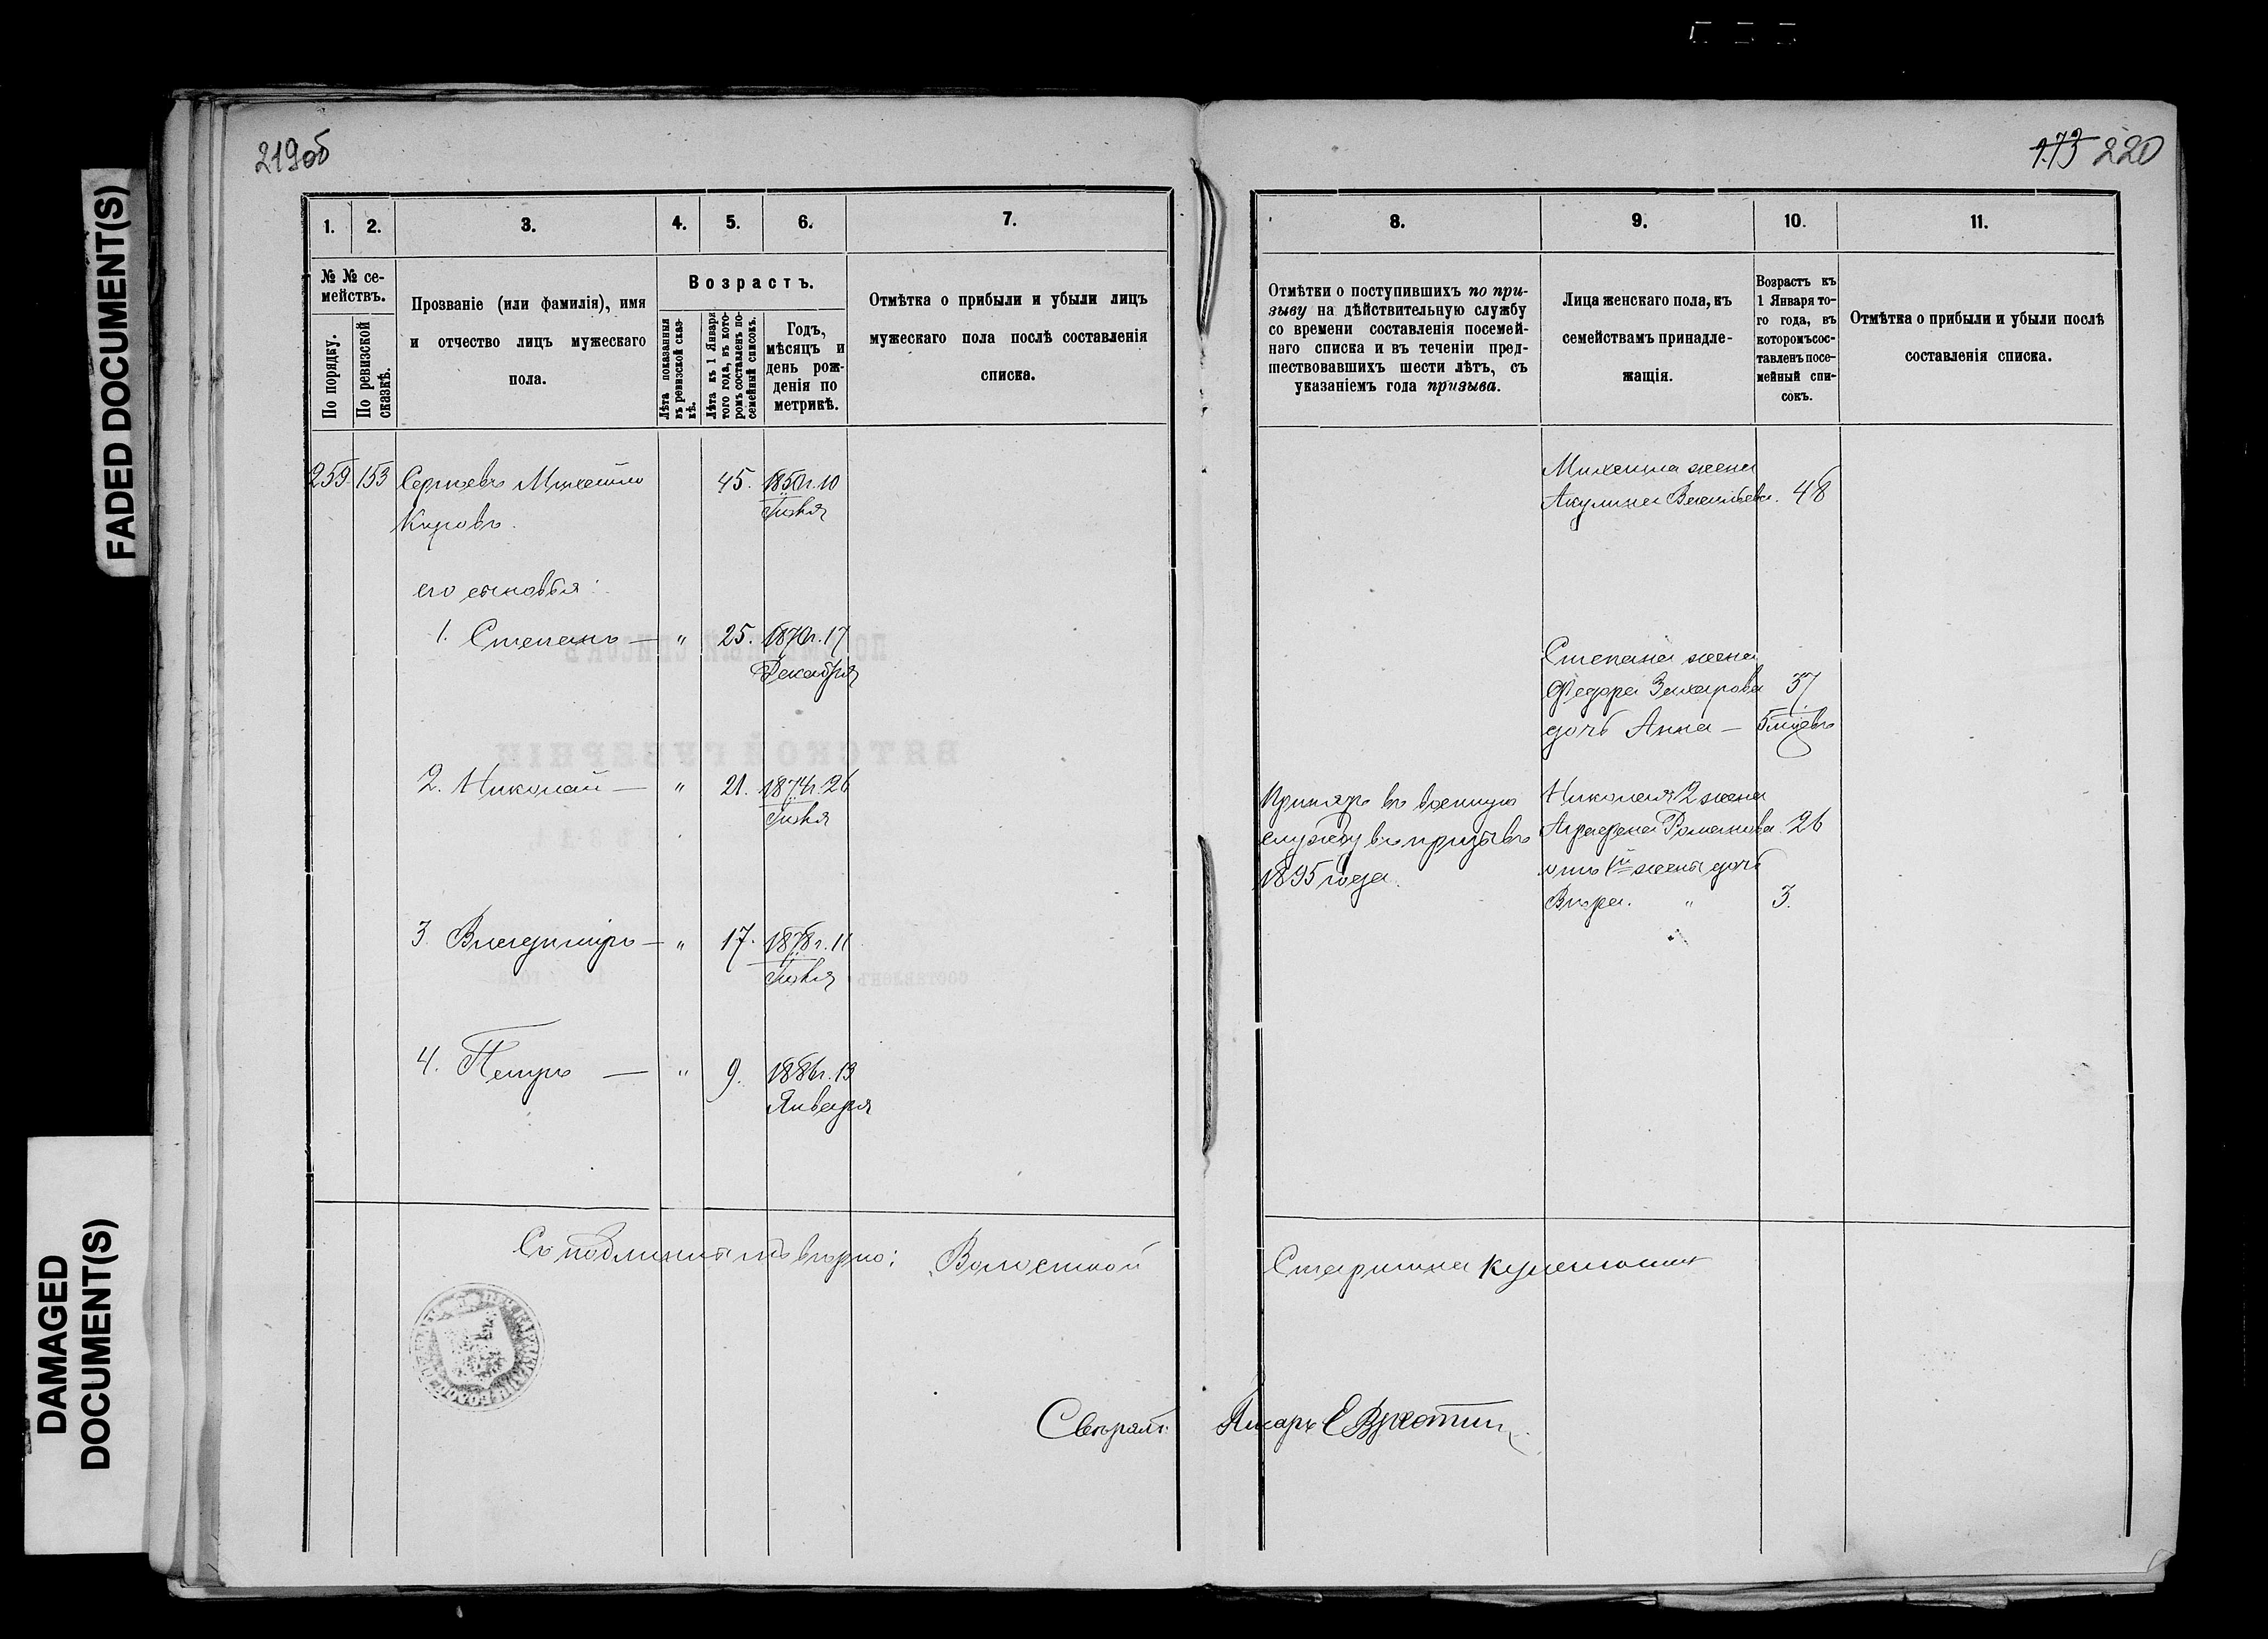 219об
173 220
FADED DOCUMENT(S)
DAMAGED
DOCUMENT(S)
1.
2.
3.
4.
5.
6.
7.
№ № се-
мействъ.
По порядку.
По ревизской
сказкѣ.
Прозваніе (или фамилія), имя
и отчество лицъ мужескаго
пола.
Возрастъ.
Лѣта показанныя
въ ревизской сказ-
кѣ.
Лѣта къ 1 Января
того года, въ кото-
ромъ составленъ по-
семейный списокъ.
Годъ,
мѣсяцъ и
день рож-
денія по
метрикѣ.
Отмѣтка о прибыли и убыли лицъ
мужескаго пола послѣ составленія
списка.
259 153 Сергѣевъ Михайло 45. 1850 г. 10
Кировъ. Іюня
его сыновья:
1. Степанъ — „ 25. 1870 г. 17
Декабря
2. Николай — „ 21. 1874 г. 26
Іюня
3. Владиміръ — „ 17. 1878 г. 11
Іюня
4. Петръ — „ 9. 1886 г. 19
Января
Съ подлиннымъ вѣрно: Волостной
Свѣрялъ:
8.
9.
10.
11.
Отмѣтки о поступившихъ по при-
зыву на дѣйствительную службу
со времени составленія посемей-
наго списка и въ теченіи пред-
шествовавшихъ шести лѣтъ, съ
указаніемъ года призыва.
Лица женскаго пола, къ
семействамъ принадле-
жащія.
Возрастъ къ
1 Января то-
го года, въ
которомъ сос-
тавленъ посе-
мейный спи-
сокъ.
Отмѣтка о прибыли и убыли послѣ
составленія списка.
Михаила жена
Акулина Васильева. 48
Степана жена
Федора Захарова 37
дочь Анна — 5 мцевъ
Принятъ въ военную
службу въ призывъ
1895 года.
Николая 2 жена
Аграфена Романова. 26
отъ 1й жены дочь
Вѣра. „ 3.
Старшина
Писарь